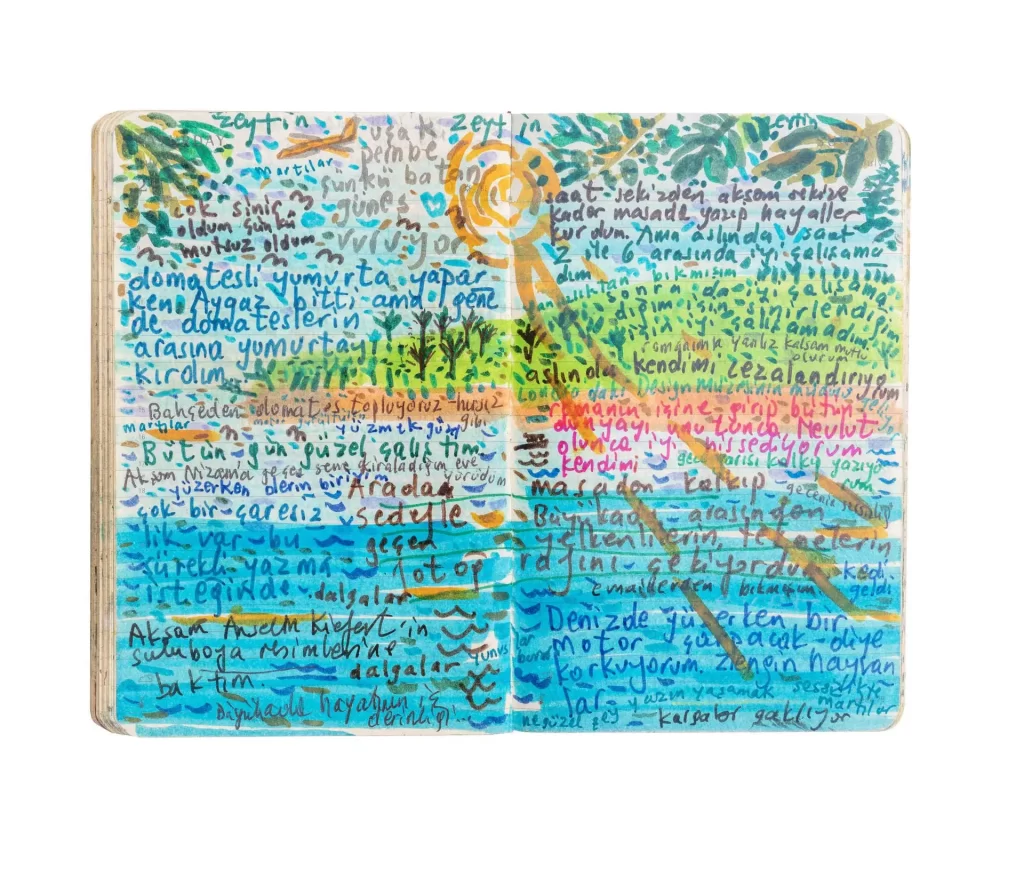 zeytin
uçak
pembe
martılar
çünkü batan
güneş
vuruyor
çok sinir
oldum çünkü
mutsuz oldum
domatesli yumurta yapar
ken Aygaz bitti ama gene
de domateslerin
arasına yumurtayı
kırdım
Bahçeden domates topluyoruz hırsız
gibi
martılar
yüzmek güzel
Bütün gün güzel çalıştım
Akşam Nizam'a geçen sene kiraladığım eve
yürüdüm
yüzerken
Aradan
çok bir çaresiz
lik var bu
sürekli yazma
isteğinde
geçen
fotoğ
dalgalar
Akşam Anselm Kiefer'in
suluboya resimlerine
baktım.
dalgalar
yunus
Büyükada hayatının
derinliği...
zeytin
zeytin
saat sekizden akşam sekize
kadar masada yazıp hayaller
kurdum. Ama aslında saat
2 ile 6 arasında iyi çalışama
dım
bıkmışım
sonra da iyi çalışama
dığım için sinirlendiğim
için iyi çalışamadım.
romanımla yalnız kalsam mutlu
olurum
aslında kendimi cezalandırıyorum
Londra'daki Design
romanın içine girip bütün
dünyayı unutunca Mevlut
olunca iyi hissediyorum
kendimi
gece yarısı kalkıp yazıyo
rum
masadan kalkıp
Büyükada arasından
yelkenlilerin, teknelerin
rafını çekiyordum
kedi
geldi
emaillerden bıkmışım
Denizde yüzerken bir
motor çarpacak diye
korkuyorum. zengin hayvan
lar.
yazın yaşamak
martılar
ne güzel şey
kargalar gaklıyor